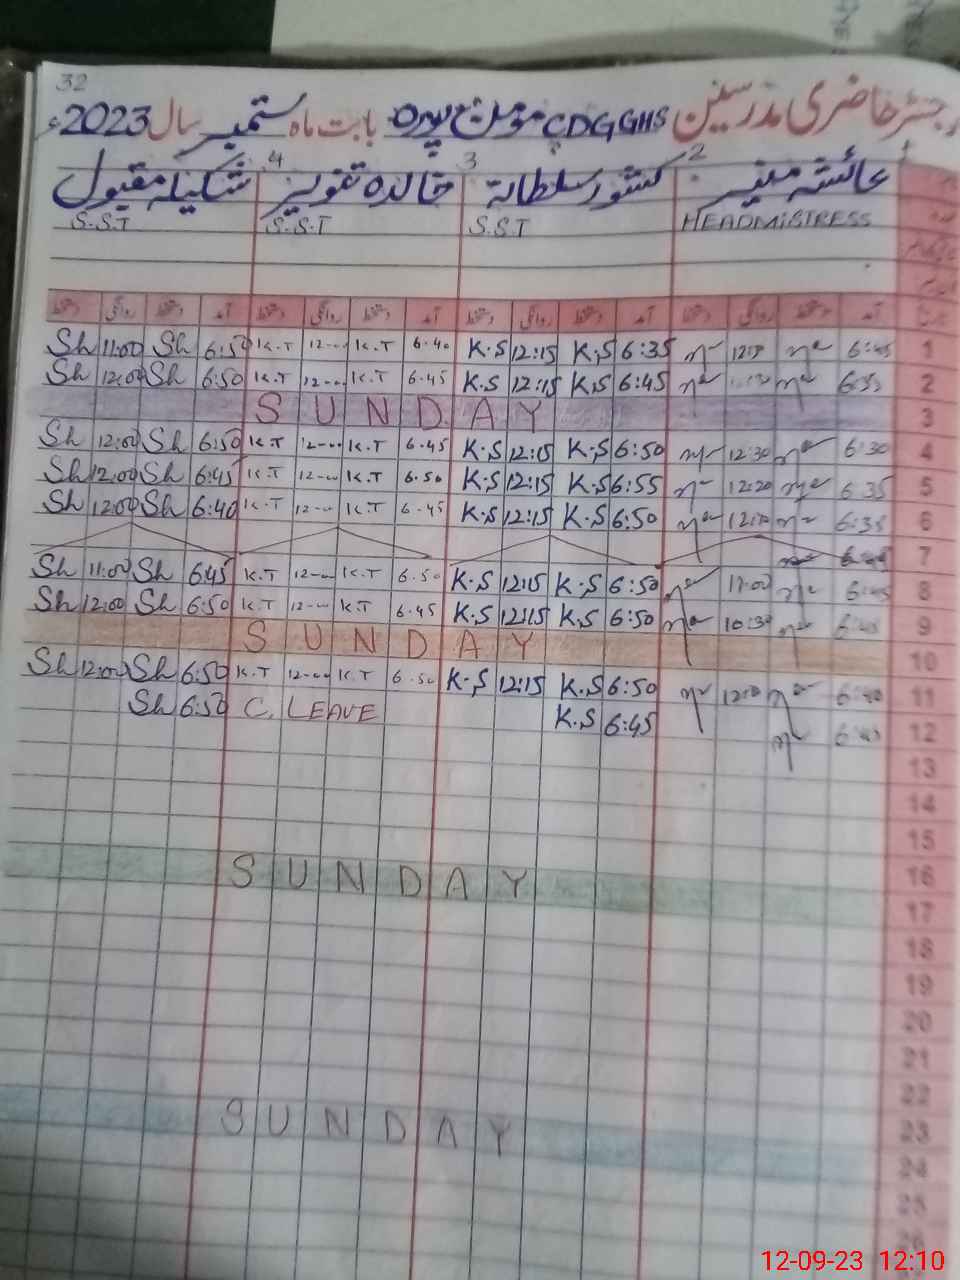 32
رجسٹر حاضری مدرسین CDGGHS مومن پورہ بابت ماہ ستمبر سال 2023ء
1 2 3 4
عائشہ منیر کشور سلطانہ خالدہ تنویر شکیلہ مقبول
HEADMISTRESS S.S.T S.S.T S.S.T
آمد دستخط روانگی دستخط آمد دستخط روانگی دستخط آمد دستخط روانگی دستخط آمد دستخط روانگی دستخط
Sh 11:00 Sh 6:50 K.T 12-00 K.T 6.40 K.S 12:15 K.S 6:35 6:45 1
Sh 12:00 Sh 6:50 K.T 12-00 K.T 6.45 K.S 12:15 K.S 6:45 6:35 2
SUNDAY 3
Sh 12:00 Sh 6:50 K.T 12-00 K.T 6.45 K.S 12:15 K.S 6:50 12:30 6:30 4
Sh 12:00 Sh 6:45 K.T 12-00 K.T 6.50 K.S 12:15 K.S 6:55 12:20 6:35 5
Sh 12:00 Sh 6:40 K.T 12-00 K.T 6.45 K.S 12:15 K.S 6:50 6:35 6
7
Sh 11:00 Sh 6:45 K.T 12-00 K.T 6.50 K.S 12:15 K.S 6:50 6:45 8
Sh 12:00 Sh 6:50 K.T 12-00 K.T 6.45 K.S 12:15 K.S 6:50 10:30 6:45 9
SUNDAY 10
Sh 12:00 Sh 6:50 K.T 12-00 K.T 6.50 K.S 12:15 K.S 6:50 6:40 11
Sh 6:50 C. LEAVE K.S 6:45 6:45 12
13
14
15
SUNDAY 16
17
18
19
20
21
22
SUNDAY 23
24
25
26
12-09-23 12:10